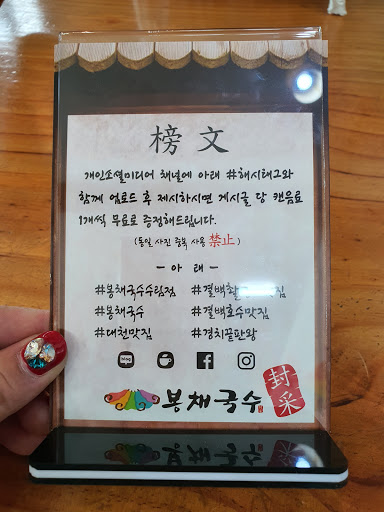 榜文
개인소셜미디어 채널에 아래 #해시태그와
함께 업로드 후 제시하시면 게시글 당 캔음료
1개씩 무료로 증정해드립니다.
(동일 사진 중복 사용 禁止)
- 아 래 -
#봉채국수수림점 #결백
#봉채국수 #결백호수맛집
#대천맛집 #경치끝판왕
blog
봉채국수
封采